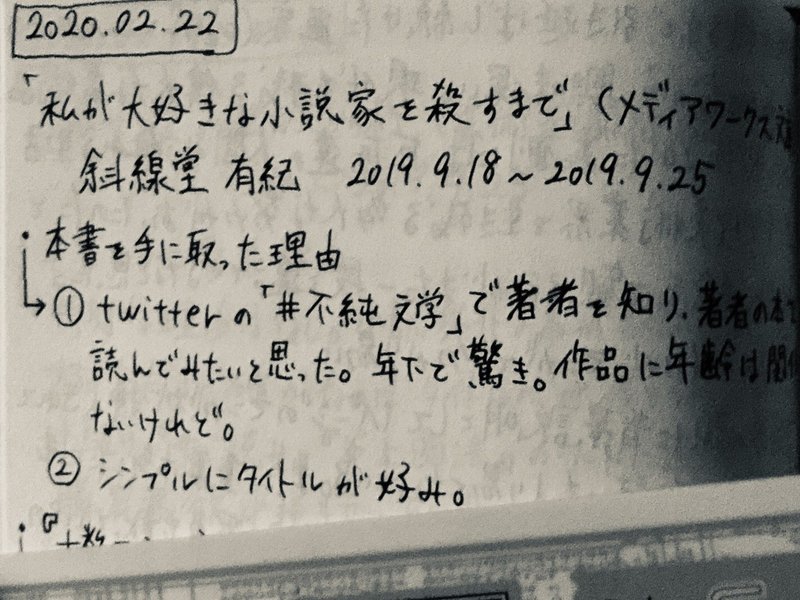 2020.02.22
「私が大好きな小説家を殺すまで」(メディアワークス文
斜線堂 有紀 2019.9.18～2019.9.25
・本書を手に取った理由
→① twitterの「#不純文学」で著者を知り、著者の本を
読んでみたいと思った。年下で驚き。作品に年齢は関係
ないけれど。
② シンプルにタイトルが好み。